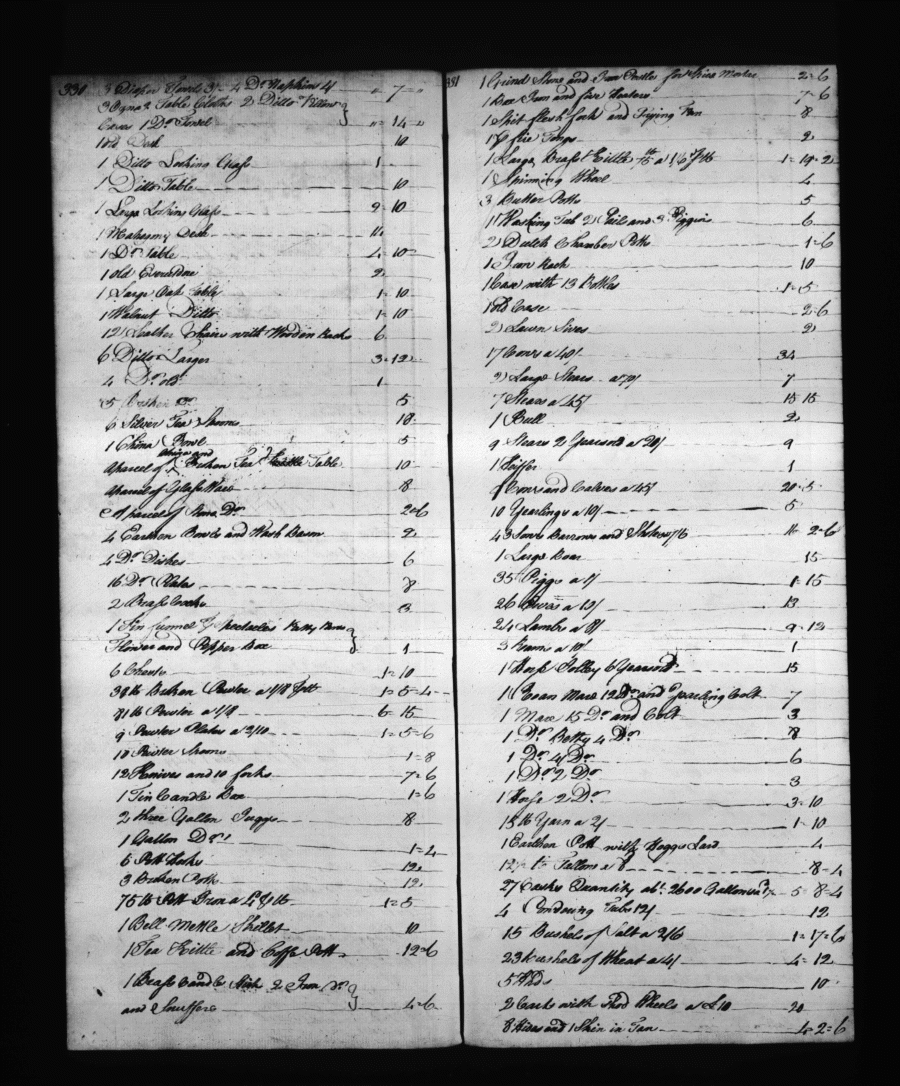 330
3 Diaper Towels 3/- 4 Do Napkins 4/ " 7 "
3 Table Cloths 2 Ditto Pillow
Cases 1 Do Towel " 14 "
1 old Desk 10
1 Ditto Looking Glass 1
1 Ditto Table 10
1 Large Looking Glass 2 = 10
1 Mahogany Desk
1 Do Table 4 10
1 old 2
1 Large Oak Table 1 = 10
1 Walnut Ditto 1 = 10
12 Leather Chairs with Wooden Backs 6
6 Ditto Larger 3 = 12
4 Do old 1
5 Do 5
6 Silver Tea Spoons 18
1 China Bowl 5
A parcel of China and Tea Table 10
A parcel of Glass Ware 8
A parcel of Do 2 = 6
4 Earthen Bowls and Wash Bason 2
4 Do Dishes 6
16 Do Plates 8
2 Brass Cocks 3
1 Tin funnel Spectacles Patty Pans
Flower and Pepper Box 1
6 Chests 1 = 10
38 lb Pewter a 1/8 1 = 5 = 4
81 lb Pewter a 1/8 6 = 15
9 Pewter Plates a 2/10 1 = 5 = 6
10 Pewter Spoons 1 = 8
12 Knives and 10 forks 7 = 6
1 Tin Candle Box 1 = 6
2 three Gallon Juggs 8
1 Gallon Do 1 = 4
6 Pott Hooks 12
3 Potts 12
75 lb Pott Iron a 4d lb 1 = 5
1 Bell Mettle Skillet 10
1 Tea Kittle and Coffe Pott 12 = 6
1 Brass Candle Stick 2 Iron Do
and Snuffers 4 = 6
331
1 Grind Stone and Iron Pestle for Spice Mortar 2 = 6
1 Box Iron and five Heaters 7 = 6
1 Spit flesh fork and Frying Pan 8
1 Pr fire Tongs 2
1 Large Brass Kittle a 1/6 lb 1 = 19 = 2
1 Spinning Wheel 4
3 Butter Potts 5
1 Washing Tub 2 Pails and 3 Piggins 6
2 Dutch Chamber Potts 1 = 6
1 Jack 10
1 Case with 13 Bottles 1 = 5
1 old Case 2 = 6
2 Lawn Sives 2
17 Cows a 40/ 34
2 Large Steers a 70/ 7
7 Steers a 45/ 15 15
1 Bull 2
9 Steers 2 Years old a 20/ 9
1 Heiffer 1
9 Cows and Calves a 45/ 20 = 5
10 Yearlings a 10/ 5
43 Sows Barrows and Shotes 7/6 16 = 2 = 6
1 Large Boar 15
35 Piggs a 1/ 1 = 15
26 Ewes a 10/ 13
24 Lambs a 8/ 9 = 12
3 Rams 1
1 Horse Jolley 6 Years old 15
1 Roan Mare 12 Do and Yearling Colt 7
1 Mare 15 Do and Colt 3
1 Do Betty 4 Do 8
1 Do 4 Do 6
1 Do 2 Do 3
1 Horse 2 Do 3 = 10
15 lb Yarn a 2/ 1 = 10
1 Earthen Pott with Hoggs Lard 4
Tallow a 8 8 = 4
27 Casks Quantity abt 2600 Gallons 5 = 8 = 4
4 Tubs 12/ 12
15 Bushels of Salt a 2/6 1 = 17 = 6
23 bushels of Wheat a 4/ 4 = 12
5 Hhds 10
2 Carts with Shod Wheels a £10 20
8 Hides and 1 Skin in Tan 4 = 2 = 6